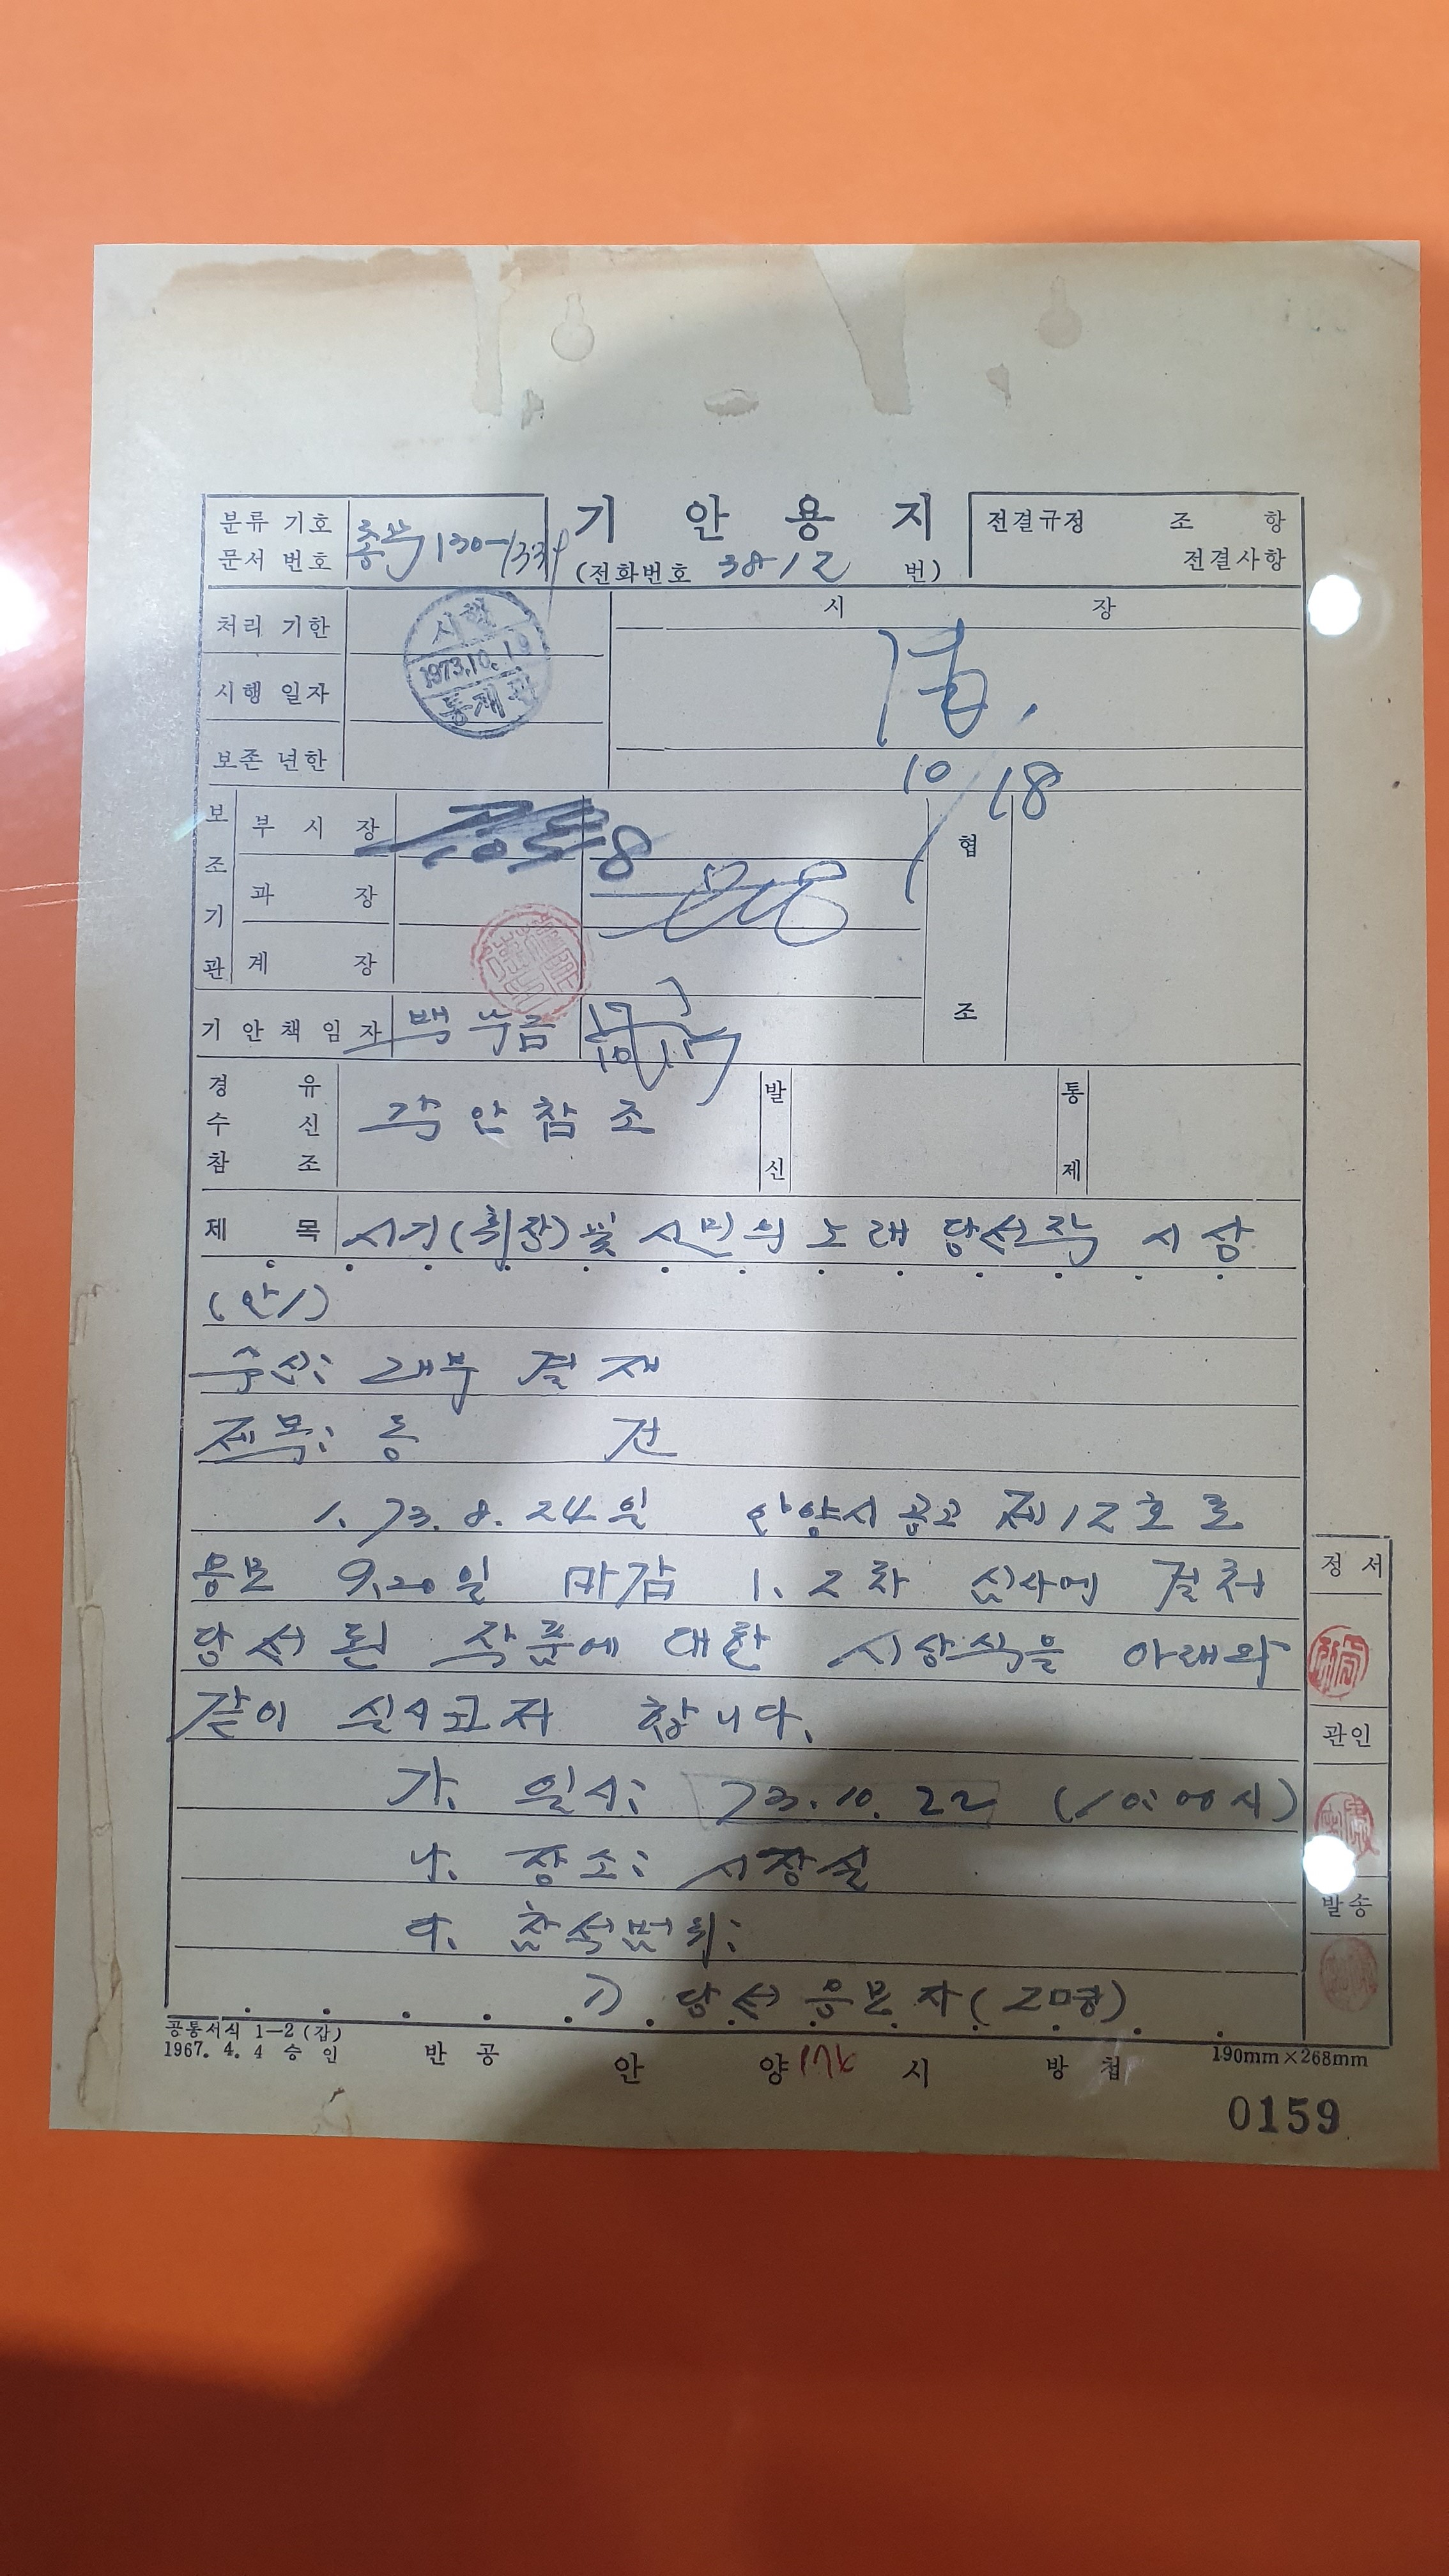 분류 기호
문서 번호
총무130-
기 안 용 지
(전화번호 3812 번)
전결규정 조 항
전결사항
처리 기한
시행 일자
보존 년한
시행
1973.10.19
통제관
시 장
10/18
보조기관
부 시 장
과 장
계 장
협조
기 안 책 임 자
백 수금
경 유
수 신
참 조
각 안 참 조
발신
통제
제 목
시기(휘장) 및 시민의 노래 당선작 시상
(안1)
수신: 내부 결재
제목: 동 건
1. 73. 8. 24일 안양시 공고 제12호로
응모 9.20일 마감 1. 2차 심사에 걸쳐
당선된 작품에 대한 시상식을 아래와
같이 실시코저 합니다.
가. 일시: 73. 10. 22 (10:00시)
나. 장소: 시장실
다. 참석범위:
1) 당선 응모자(2명)
정 서
관인
발송
공통서식 1—2 (갑)
1967. 4. 4 승 인
반 공
안 양 시
방 첩
190mm×268mm
0159